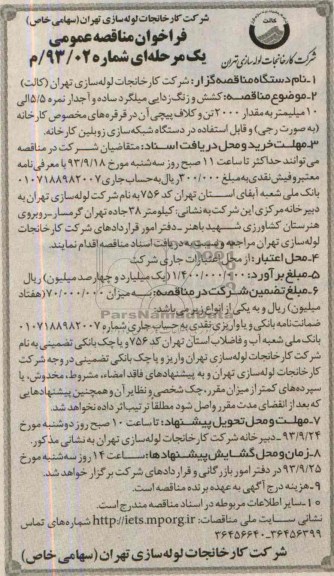 شرکت کارخانجات لوله سازی تهران (سهامی خاص)
فراخوان مناقصه عمومی
یک مرحله‌ای شماره ۹۳/۰۲/م
کالت
شرکت کارخانجات لوله سازی تهران
۱- نام دستگاه مناقصه گزار: شرکت کارخانجات لوله سازی تهران (کالت)
۲- موضوع مناقصه: کشش و زنگ زدایی میلگرد ساده و آجدار نمره ۵/۵ الی
۱۰ میلیمتر به مقدار ۲۰۰۰ تن و کلاف پیچی آن در قرقره‌های مخصوص کارخانه
(به صورت رجی) و قابل استفاده در دستگاه شبکه سازی زوبلین کارخانه.
۳- مهلت خرید و محل دریافت اسناد: متقاضیان شرکت در مناقصه
می‌توانند حداکثر تا ساعت ۱۱ صبح روز سه شنبه مورخ ۹۳/۹/۱۸ با معرفی نامه
معتبر و فیش نقدی به مبلغ ۳۰۰/۰۰۰ ریال به حساب جاری ۰۱۰۷۱۸۸۹۸۲۰۰۷
بانک ملی شعبه آبفای استان تهران کد ۷۵۶ به نام شرکت لوله سازی تهران به
دبیرخانه مرکزی این شرکت به نشانی: کیلومتر ۳۸ جاده تهران گرمسار- روبروی
هنرستان کشاورزی شهید باهنر - دفتر امور قراردادهای شرکت کارخانجات
لوله سازی تهران مراجعه و نسبت به دریافت اسناد مناقصه اقدام نمایند.
۴- محل اعتبار: از محل اعتبارات جاری شرکت
۵- مبلغ برآورد: ۱/۴۰۰/۰۰۰/۰۰۰ (یک میلیارد و چهارصد میلیون) ریال
۶- مبلغ تضمین شرکت در مناقصه: به میزان ۷۰/۰۰۰/۰۰۰ (هفتاد
میلیون) ریال و به یکی از انواع زیر می‌باشد:
ضمانت نامه بانکی و یا واریزی نقدی به حساب جاری شماره ۰۱۰۷۱۸۸۹۸۲۰۰۷
بانک ملی شعبه آب و فاضلاب استان تهران کد ۷۵۶ و یا چک بانکی تضمینی به نام
شرکت کارخانجات لوله سازی تهران واریز و یا چک بانکی تضمینی در وجه شرکت
کارخانجات لوله سازی تهران و به پیشنهادهای فاقد امضاء، مشروط، مخدوش، یا
سپرده‌های کمتر از میزان مقرر، چک شخصی و نظایر آن و همچنین پیشنهادهایی
که بعد از انقضای مدت مقرر واصل شود مطلقا ترتیب اثر داده نخواهد شد.
۷- مهلت و محل تحویل پیشنهاد: تا ساعت ۱۰ صبح روز دوشنبه مورخ
۹۳/۹/۲۴ - دبیرخانه شرکت کارخانجات لوله سازی تهران به نشانی مذکور.
۸- زمان و محل گشایش پیشنهادها: ساعت ۱۴ روز سه شنبه مورخ
۹۳/۹/۲۵ در دفتر امور بازرگانی و قراردادهای شرکت برگزار خواهد شد.
۹- هزینه درج آگهی به عهده برنده مناقصه است.
۱۰- سایر اطلاعات مربوطه در اسناد مناقصه مندرج است.
نشانی سایت ملی مناقصات: http://iets.mporg.ir شماره‌های تماس
۳۶۴۵۶۳۹۹-۳۶۴۵۶۶۴۰
شرکت کارخانجات لوله سازی تهران (سهامی خاص)